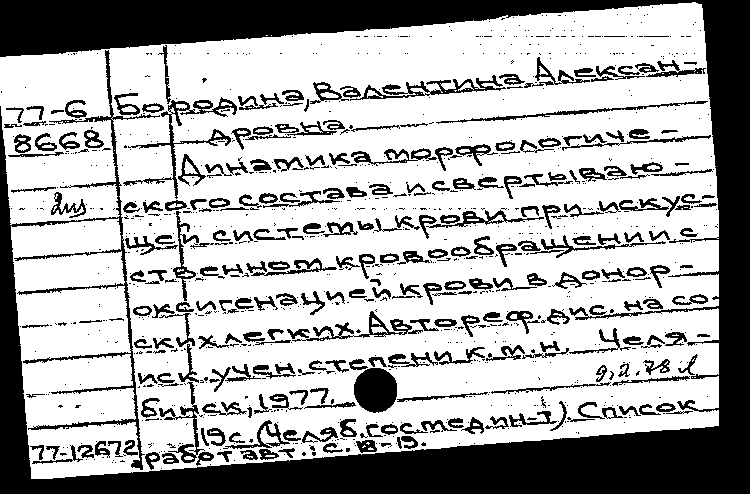 77-6 Бородина, Валентина Алексан-
8668 дровна.
Динамика морфологиче-
2из ского состава и свертываю-
щей системы крови при искус-
ственном кровообращении с
оксигенацией крови в донор-
ских легких. Автореф. дис. на со-
иск. учен. степени к.м.н. Челя-
9,2.78 л
бинск, 1977.
19с. (Челяб. гос. мед. ин-т). Список
77-12672 работ авт.: с. 18-19.